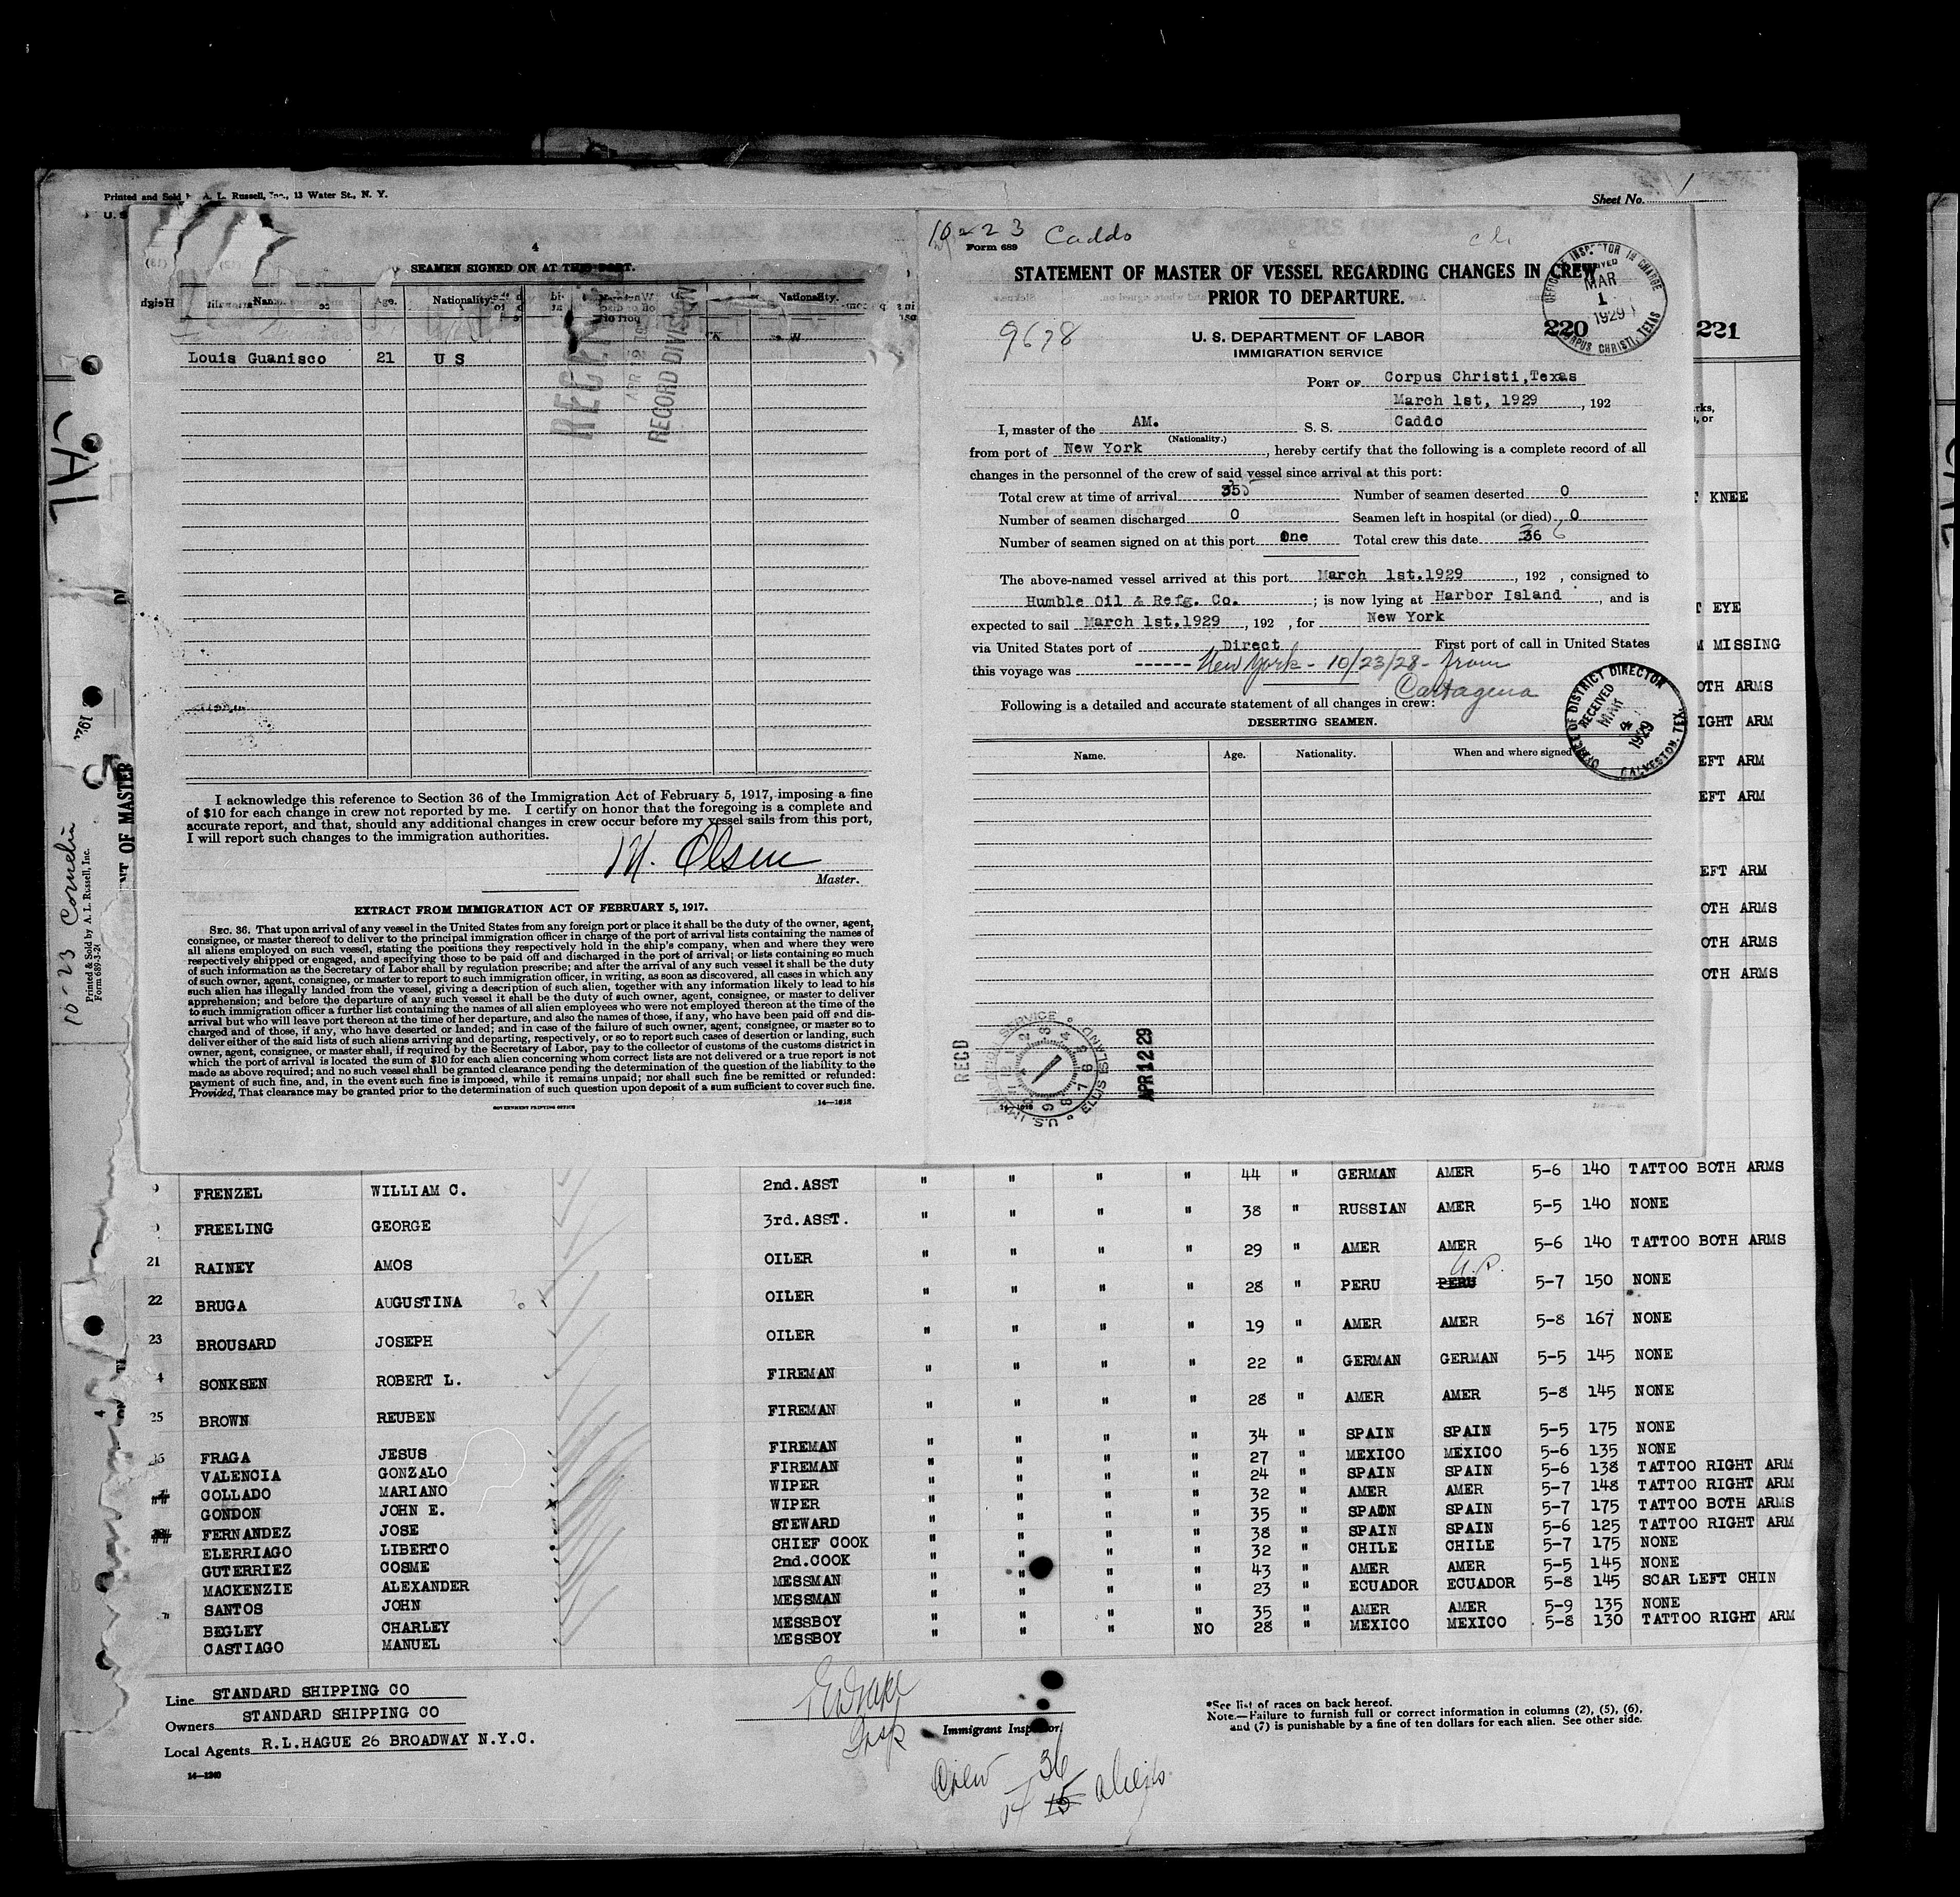 Printed and Sold by A. L. Russell, Inc., 13 Water St., N. Y.
Sheet No.
4
SEAMEN SIGNED ON AT THIS PORT.
Name. Age. Nationality. Nationality.
Louis Guanisco 21 U S
RECORD DIVISION
I acknowledge this reference to Section 36 of the Immigration Act of February 5, 1917, imposing a fine
of $10 for each change in crew not reported by me. I certify on honor that the foregoing is a complete and
accurate report, and that, should any additional changes in crew occur before my vessel sails from this port,
I will report such changes to the immigration authorities.
M. Olsen
Master.
EXTRACT FROM IMMIGRATION ACT OF FEBRUARY 5, 1917.
SEC. 36. That upon arrival of any vessel in the United States from any foreign port or place it shall be the duty of the owner, agent,
consignee, or master thereof to deliver to the principal immigration officer in charge of the port of arrival lists containing the names of
all aliens employed on such vessel, stating the positions they respectively hold in the ship's company, when and where they were
respectively shipped or engaged, and specifying those to be paid off and discharged in the port of arrival; or lists containing so much
of such information as the Secretary of Labor shall by regulation prescribe; and after the arrival of any such vessel it shall be the duty
of such owner, agent, consignee, or master to report to such immigration officer, in writing, as soon as discovered, all cases in which any
such alien has illegally landed from the vessel, giving a description of such alien, together with any information likely to lead to his
apprehension; and before the departure of any such vessel it shall be the duty of such owner, agent, consignee, or master to deliver
to such immigration officer a further list containing the names of all alien employees who were not employed thereon at the time of the
arrival but who will leave port thereon at the time of her departure, and also the names of those, if any, who have been paid off and dis-
charged and of those, if any, who have deserted or landed; and in case of the failure of such owner, agent, consignee, or master so to
deliver either of the said lists of such aliens arriving and departing, respectively, or so to report such cases of desertion or landing, such
owner, agent, consignee, or master shall, if required by the Secretary of Labor, pay to the collector of customs of the customs district in
which the port of arrival is located the sum of $10 for each alien concerning whom correct lists are not delivered or a true report is not
made as above required; and no such vessel shall be granted clearance pending the determination of the question of the liability to the
payment of such fine, and, in the event such fine is imposed, while it remains unpaid; nor shall such fine be remitted or refunded:
Provided, That clearance may be granted prior to the determination of such question upon deposit of a sum sufficient to cover such fine.
GOVERNMENT PRINTING OFFICE
10-23 Caddo
Form 689
STATEMENT OF MASTER OF VESSEL REGARDING CHANGES IN CREW
PRIOR TO DEPARTURE.
OFFICE OF INSPECTOR IN CHARGE
RECEIVED
MAR
1
1929
CORPUS CHRISTI, TEXAS
9678
U. S. DEPARTMENT OF LABOR
IMMIGRATION SERVICE
220
221
PORT OF Corpus Christi, Texas
March 1st, 1929, 192
I, master of the AM. S. S. Caddo
(Nationality.)
from port of New York, hereby certify that the following is a complete record of all
changes in the personnel of the crew of said vessel since arrival at this port:
Total crew at time of arrival 35 Number of seamen deserted 0
Number of seamen discharged 0 Seamen left in hospital (or died) 0
Number of seamen signed on at this port One Total crew this date 36
The above-named vessel arrived at this port March 1st.1929, 192 , consigned to
Humble Oil & Refg. Co. ; is now lying at Harbor Island, and is
expected to sail March 1st.1929, 192 , for New York
via United States port of Direct First port of call in United States
this voyage was ------ New York - 10/23/28 - from
Cartagena
Following is a detailed and accurate statement of all changes in crew:
DESERTING SEAMEN.
OFFICE OF DISTRICT DIRECTOR
RECEIVED
MAR
4
1929
GALVESTON, TEX.
Name. Age. Nationality. When and where signed
RECD
ELLIS ISLAND
APR 12 29
KNEE
EYE
MISSING
OTH ARMS
IGHT ARM
EFT ARM
EFT ARM
EFT ARM
OTH ARMS
OTH ARMS
OTH ARMS
10-23 Cornelia
Printed & Sold by A. L. Russell, Inc.
OF MASTER
FRENZEL WILLIAM C. 2nd.ASST " " " " 44 " GERMAN AMER 5-6 140 TATTOO BOTH ARMS
FREELING GEORGE 3rd.ASST. " " " " 38 " RUSSIAN AMER 5-5 140 NONE
21 RAINEY AMOS OILER " " " " 29 " AMER AMER 5-6 140 TATTOO BOTH ARMS
22 BRUGA AUGUSTINA OILER " " " " 28 " PERU PERU 5-7 150 NONE
23 BROUSARD JOSEPH OILER " " " " 19 " AMER AMER 5-8 167 NONE
4 SONKSEN ROBERT L. FIREMAN " " " " 22 " GERMAN GERMAN 5-5 145 NONE
25 BROWN REUBEN FIREMAN " " " " 28 " AMER AMER 5-8 145 NONE
FRAGA JESUS FIREMAN " " " " 34 " SPAIN SPAIN 5-5 175 NONE
VALENCIA GONZALO FIREMAN " " " " 27 " MEXICO MEXICO 5-6 135 NONE
COLLADO MARIANO WIPER " " " " 24 " SPAIN SPAIN 5-6 138 TATTOO RIGHT ARM
GONDON JOHN E. WIPER " " " " 32 " AMER AMER 5-7 148 TATTOO RIGHT ARM
FERNANDEZ JOSE STEWARD " " " " 35 " SPAIN SPAIN 5-7 175 TATTOO BOTH ARMS
ELERRIAGO LIBERTO CHIEF COOK " " " " 38 " SPAIN SPAIN 5-6 125 TATTOO RIGHT ARM
GUTERRIEZ COSME 2nd.COOK " " " " 32 " CHILE CHILE 5-7 175 NONE
MACKENZIE ALEXANDER MESSMAN " " " " 43 " AMER AMER 5-5 145 NONE
SANTOS JOHN MESSMAN " " " " 23 " ECUADOR ECUADOR 5-8 145 SCAR LEFT CHIN
BEGLEY CHARLEY MESSBOY " " " " 35 " AMER AMER 5-9 135 NONE
CASTIAGO MANUEL MESSBOY " " " NO 28 " MEXICO MEXICO 5-8 130 TATTOO RIGHT ARM
Line STANDARD SHIPPING CO
Owners STANDARD SHIPPING CO
Local Agents R.L.HAGUE 26 BROADWAY N.Y.C.
14—1240
Insp
Immigrant Inspector
Crew 36
15 aliens
*See list of races on back hereof.
Note.—Failure to furnish full or correct information in columns (2), (5), (6),
and (7) is punishable by a fine of ten dollars for each alien. See other side.